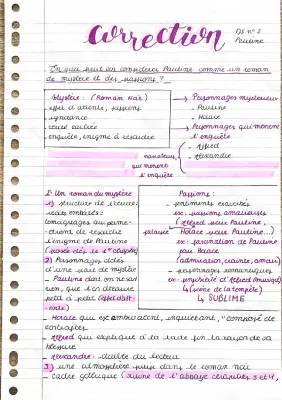 correction
DS n°2
Pauline
En quoi peut-on considérer Pauline comme un roman
de mystère et des passions ?
Mystère : (Roman noir)
- effet d'attente, suspens
- ignorance
- vérité cachée
- enquête, énigme à résoudre
→ Personnages mystérieux
- Pauline
- Horace
→ Personnages qui mènent
l'enquête
- Alfred
- Alexandre
narrateurs
qui mènent
l'enquête
I- Un roman du mystère
1) structure de l'œuvre:
récits emboités:
témoignages qui
d'résoudre
l'énigme de Pauline
(posée dès le 1er chapitre)
2) Personnages clés
d'une
- Pauline dont on ne sait
rien, que l'on découvre
petit à petit (effet d'att-
ente)
- Horace qui est ambivalent, inquiétant, "composé de
contrastes"
- Alfred qui explique
blessure
- Alexandre : double du lecteur
3) une atmosphère
- cadre gothique (ruine de l'abbaye chapitres 3 et 4,
Passions :
- sentiments exacerbés
ex: passions amoureuses
(Alfred pour Pauline,
jalousie Horace pour Pauline...)
ex: fascination de Pauline
pour Horace
(admiration, crainte, amour)
- personnages romantiques
ex:
↳ (scène de la tempête)
↳ SUBLIME